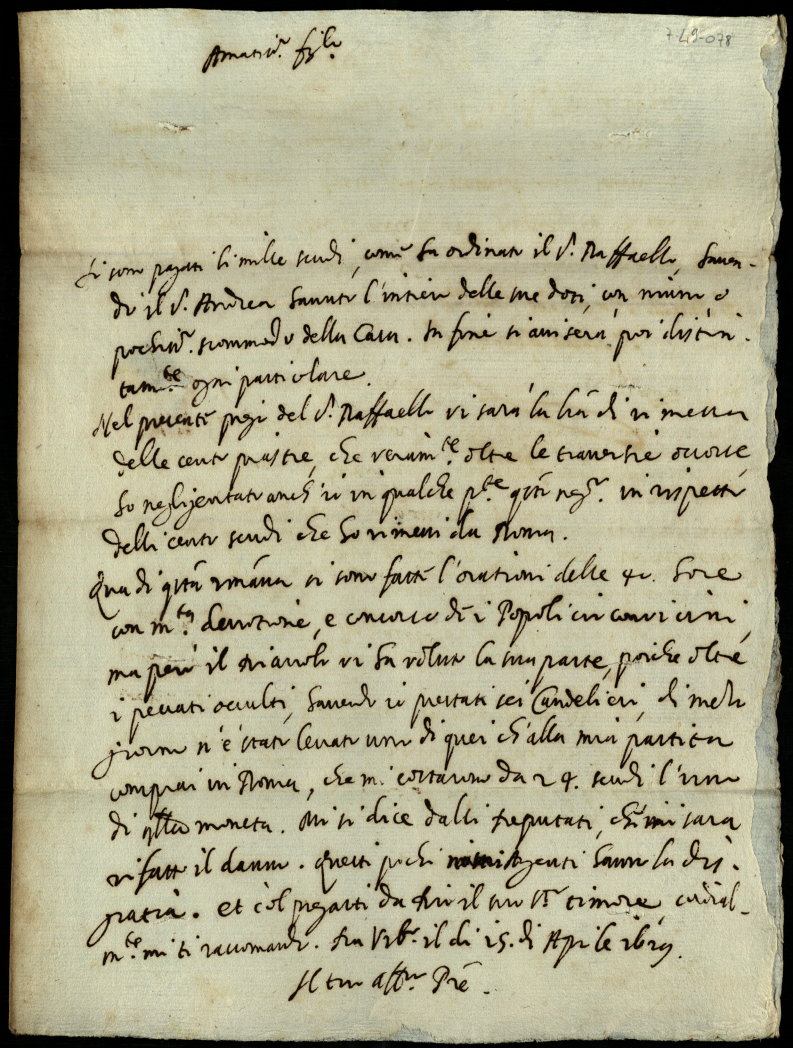 749-078
Amatis.º fig.lo
Si sono pagati li mille scudi, come ha ordinato il S. Raffaello, haven-
do il S. Andrea havuto l'intiero delle sue doti, con niuno o
pochis.º scommodo della Casa. In fine si aviserà poi distin-
tam.te ogni particolare.
Nel presente del S. Raffaello vi sarà la di rimessa
delle cento piastre, che veram.te oltre le traversie occorse
ho negligentato anch'io in qualche p.te q.to neg.º in rispetto
delli cento scudi che ho rimessi da Roma.
Qua di q.ta si sono fatte l'orationi delle 40. hore
con m.ta devotione, e concorso de i Popoli circonvicini,
ma però il diavolo vi ha voluto la sua parte, poiche oltre
i peccati occulti, havendo io prestati sei Candelieri, di mezo
giorno n'è stato levato uno di quei ch'alla mia partita
comprai in Roma, che mi costarono da 24. scudi l'uno
di q.lla moneta. Mi si dice dalli deputati, che mi sara
rifatto il danno. Questi pochi Argenti hanno la dis-
gratia. et col pregarti da Dio il suo s.to timore, cordial-
m.te mi ti raccomando. Da Urb.º il di 15. di Aprile 1629.
Il tuo aff.mo Pre.